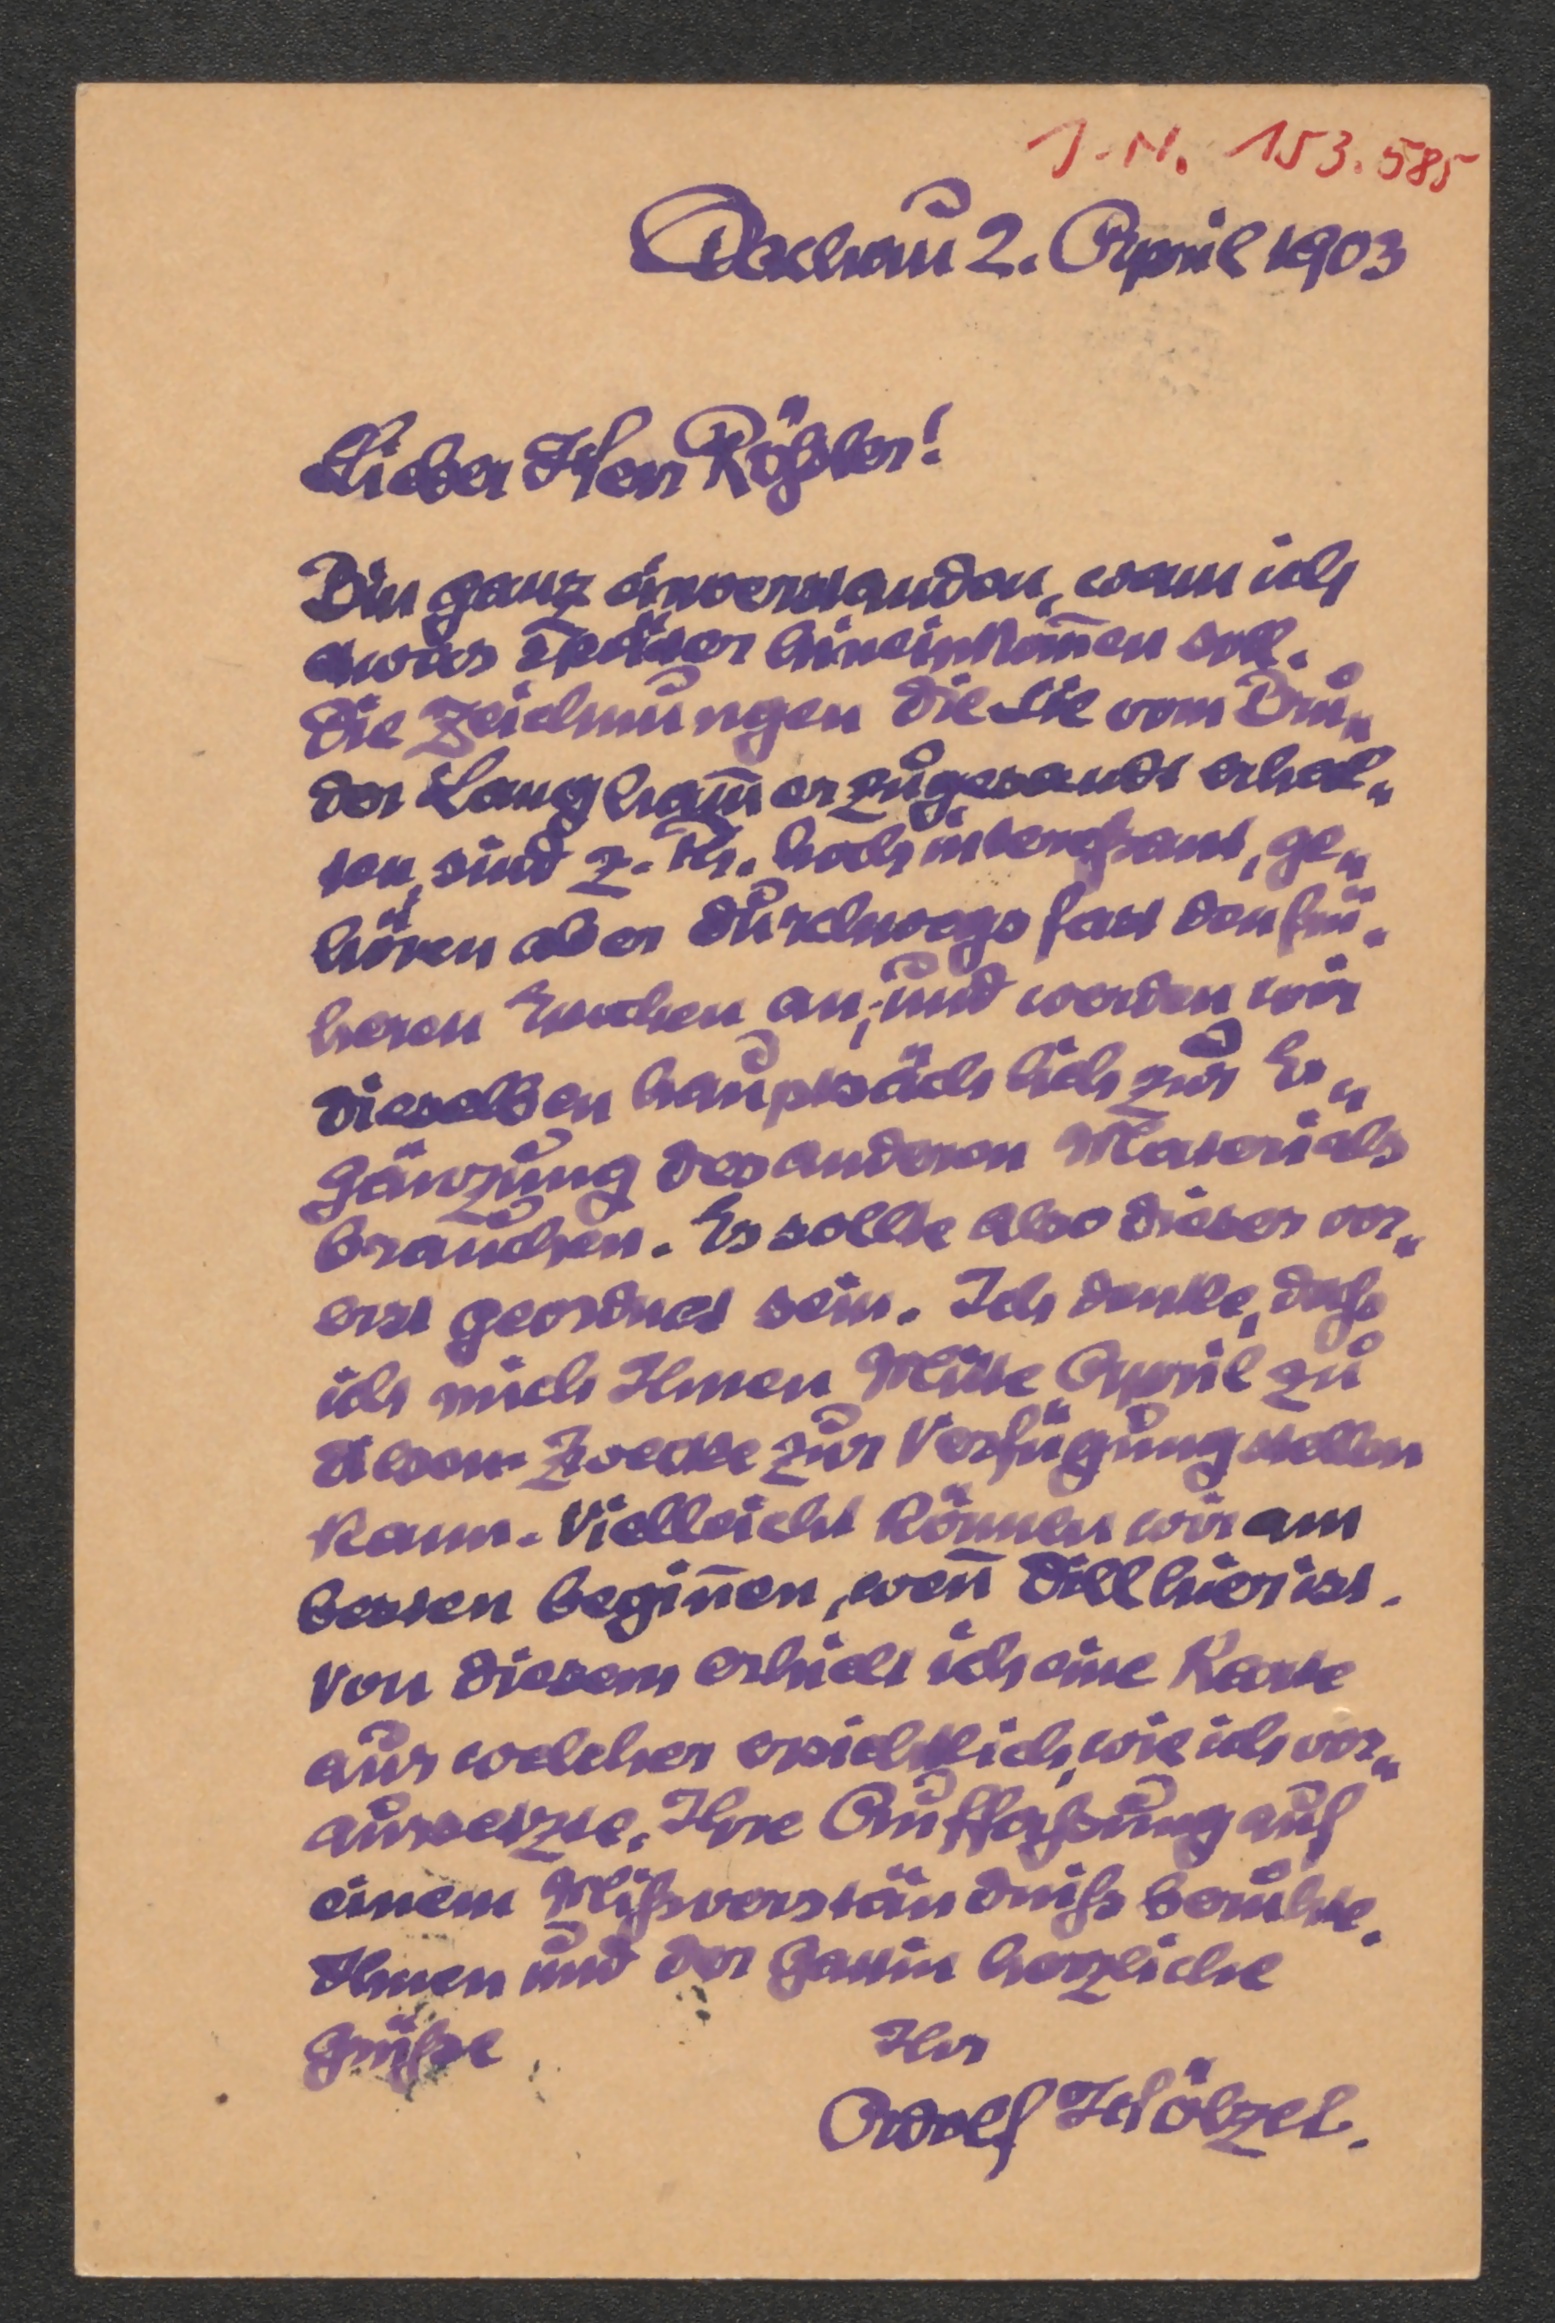 J.N. 153.585
Dachau 2. April 1903
Lieber Herr Rößler!
Bin ganz einverstanden, wann ich
etwas später hineinkom̄en soll.
Die Zeichnungen die Sie vom Bru„
der Langham̄er zugesandt erhal„
ten, sind z. Th. hoch interessant, ge„
hören aber durchwegs fast den frü„
heren Epochen an; und werden wir
dieselben hauptsächlich zur Er„
gänzung des anderen Materials
brauchen. Es sollte also dieses vor„
erst geordnet sein. Ich denke, daß
ich mich Ihnen Mitte April zu
diesem Zwecke zur Verfügung stellen
kann. Vielleicht können wir am
besten begin̄en, wen̄ Dill hier ist.
Von diesem erhielt ich eine Karte
aus welcher ersichtlich, wie ich vor„
aussetzte, Ihre Auffaßung auf
einem Mißverständniß beruhte.
Ihnen und der Gattin herzliche
Grüße
Ihr
Adolf Hölzel.